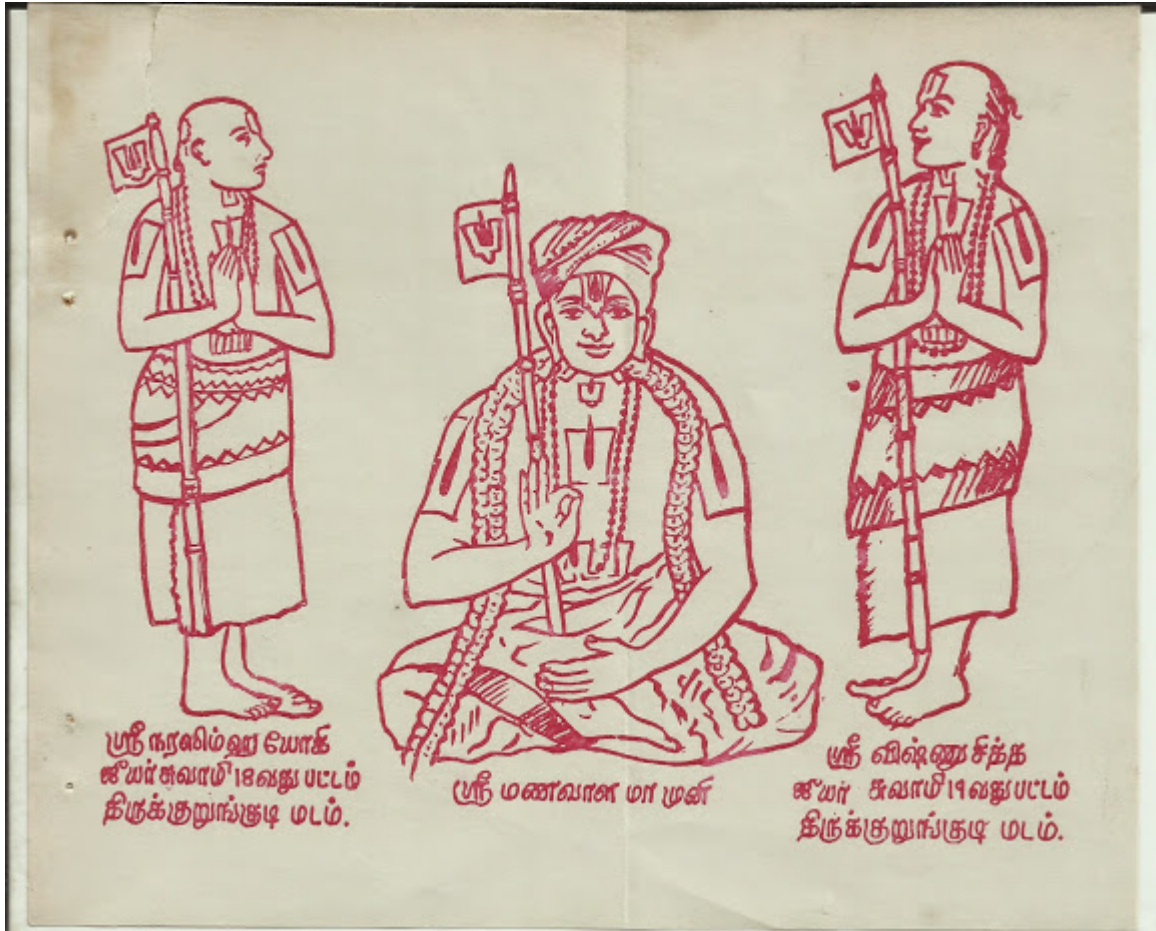 ஸ்ரீ நரஸிம்ஹ யோகி
ஜீயர் சுவாமி 18வது பட்டம்
திருக்குறுங்குடி மடம்.
ஸ்ரீ மணவாள மா முனி
ஸ்ரீ விஷ்ணு சித்த
ஜீயர் சுவாமி 19வது பட்டம்
திருக்குறுங்குடி மடம்.